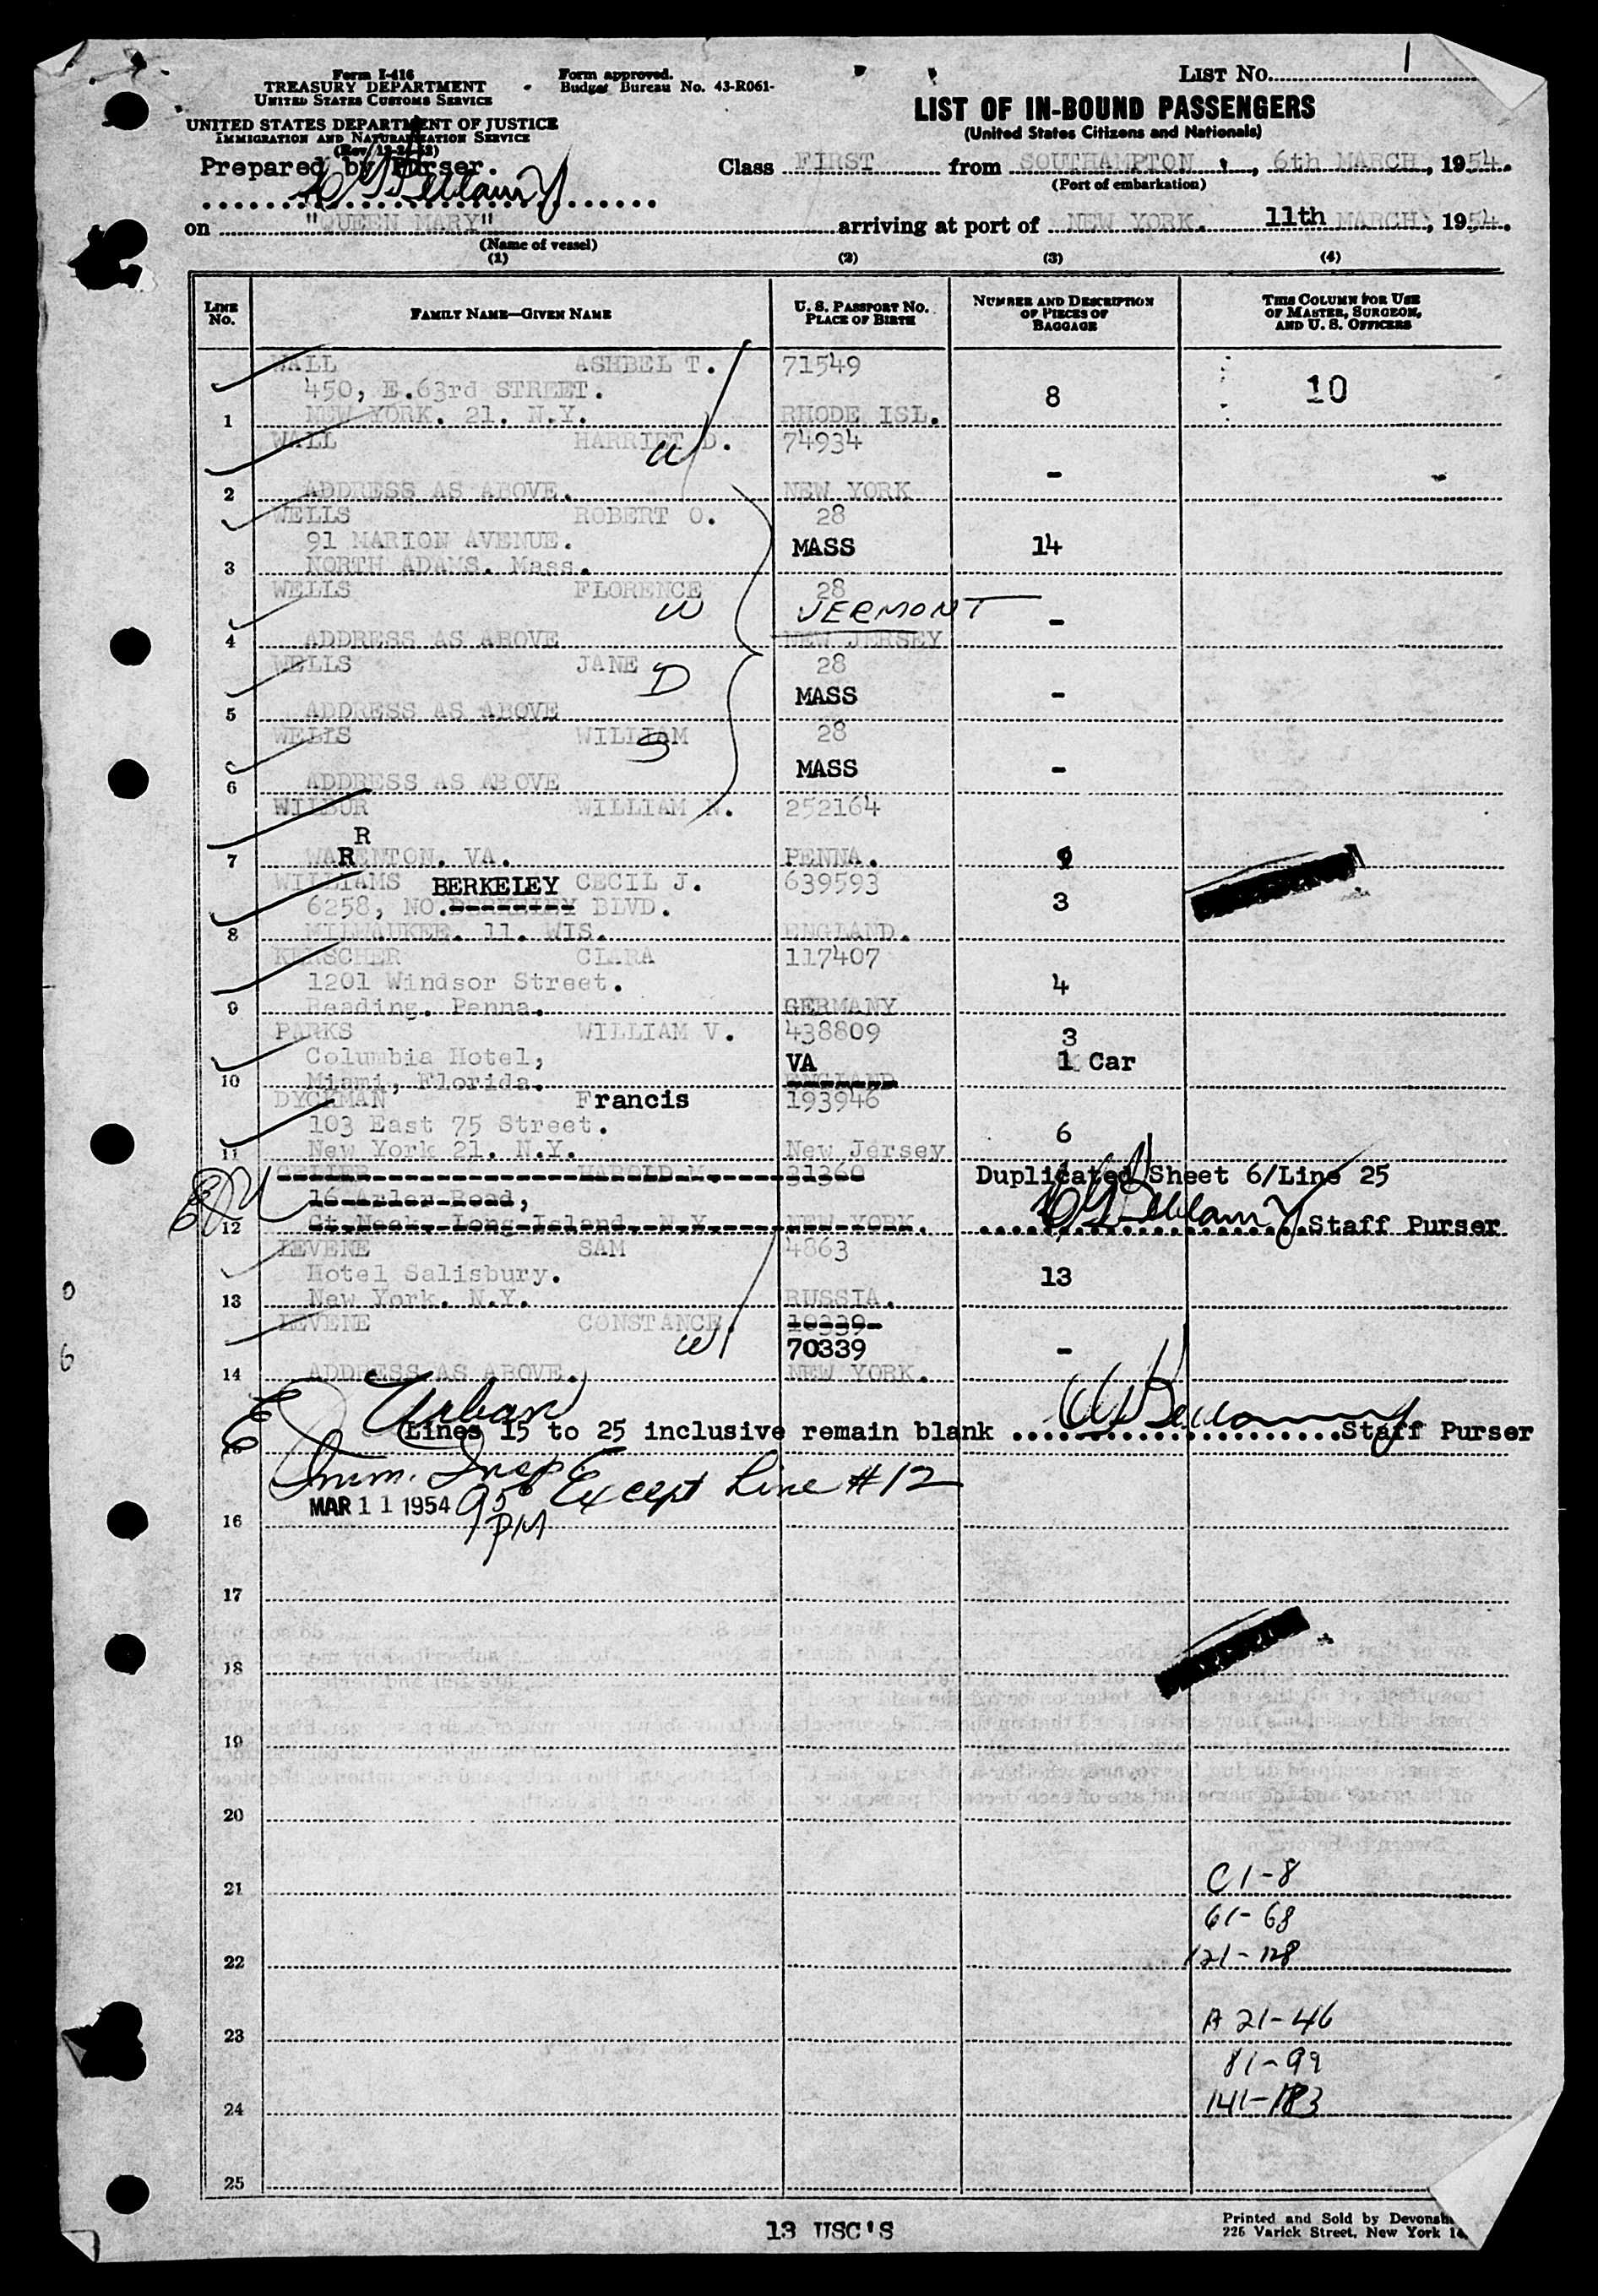 Form I-416
TREASURY DEPARTMENT
UNITED STATES CUSTOMS SERVICE
Form approved.
Budget Bureau No. 43-R061-
LIST NO. 1
UNITED STATES DEPARTMENT OF JUSTICE
IMMIGRATION AND NATURALIZATION SERVICE
LIST OF IN-BOUND PASSENGERS
(United States Citizens and Nationals)
Prepared by Purser.
Class FIRST from SOUTHAMPTON, 6th MARCH, 1954.
(Port of embarkation)
on "QUEEN MARY" arriving at port of NEW YORK. 11th MARCH, 1954.
(Name of vessel)
(1) (2) (3) (4)
LINE NO. FAMILY NAME—GIVEN NAME U. S. PASSPORT NO. PLACE OF BIRTH NUMBER AND DESCRIPTION OF PIECES OF BAGGAGE THIS COLUMN FOR USE OF MASTER, SURGEON, AND U. S. OFFICERS
WALL ASHBEL T. 71549
450, E.63rd STREET. 8 10
1 NEW YORK. 21. N.Y. RHODE ISL.
WALL HARRIET D. 74934
W -
2 ADDRESS AS ABOVE. NEW YORK
WELLS ROBERT O. 28
91 MARION AVENUE. MASS 14
3 NORTH ADAMS. Mass.
WELLS FLORENCE 28
W VERMONT -
4 ADDRESS AS ABOVE NEW JERSEY
WELLS JANE 28
D MASS -
5 ADDRESS AS ABOVE
WELLS WILLIAM 28
S MASS -
6 ADDRESS AS ABOVE
WILBUR WILLIAM N. 252164
R
7 WARENTON. VA. PENNA.
WILLIAMS BERKELEY CECIL J. 639593
6258, NO. BERKELEY BLVD. 3
8 MILWAUKEE. 11. WIS. ENGLAND.
KERSCHER CLARA 117407
1201 Windsor Street. 4
9 Reading. Penna. GERMANY
PARKS WILLIAM V. 438809 3
Columbia Hotel, VA 1 Car
10 Miami, Florida. ENGLAND
DYCKMAN Francis 193946
103 East 75 Street. 6
11 New York 21. N.Y. New Jersey
GELLER HAROLD M. 31360 Duplicated Sheet 6/Line 25
16 Arler Road,
12 Gt.Neck. Long Island. N.Y. NEW YORK. Staff Purser
LEVENE SAM 4863
Hotel Salisbury. 13
13 New York. N.Y. RUSSIA.
LEVENE CONSTANCE. 10339
W 70339 -
14 ADDRESS AS ABOVE. NEW YORK.
Urban
Lines 15 to 25 inclusive remain blank Staff Purser
15
Imm. Insp. Except Line #12
MAR 11 1954 9 50 PM
16
17
18
19
20
C 1-8
21
61-68
121-128
22
A 21-46
23
81-99
141-183
24
25
13 USC'S
Printed and Sold by
225 Varick Street, New York